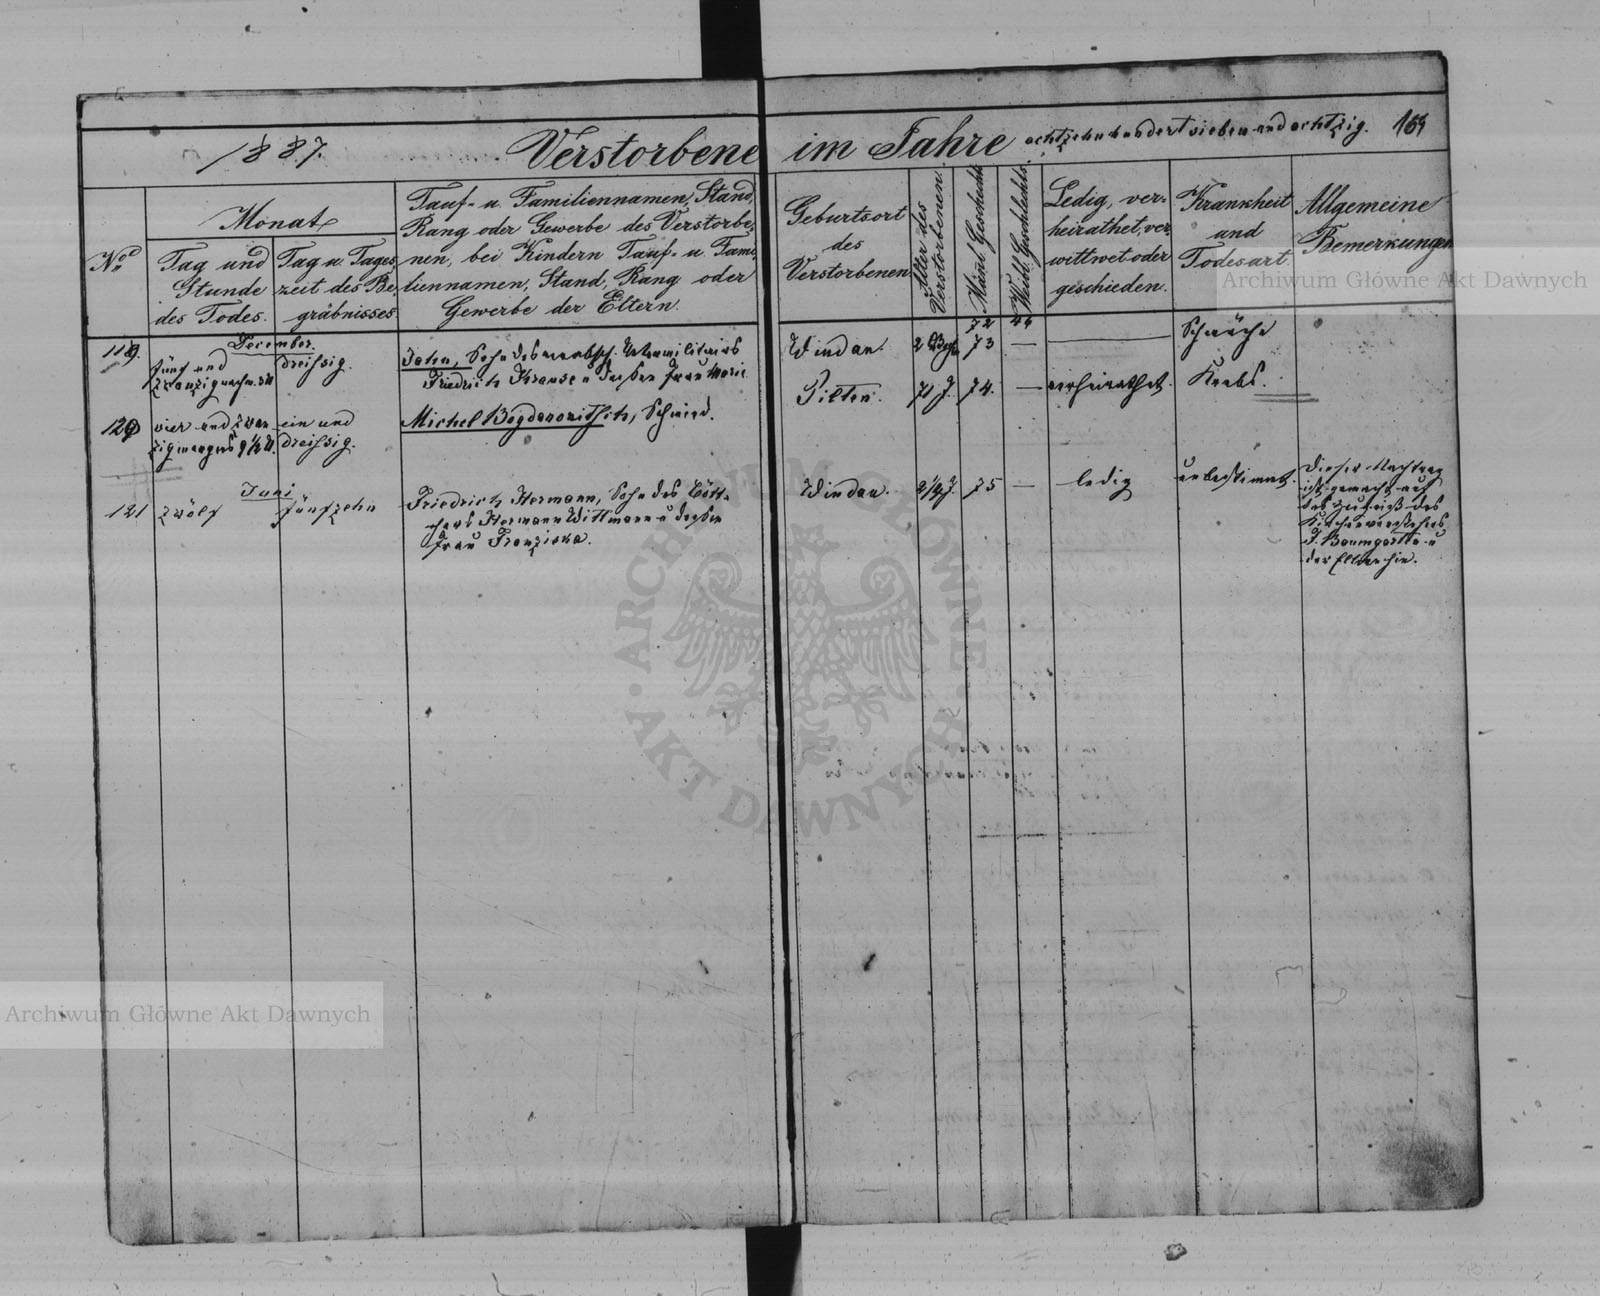 1887. Verstorbene im Jahre achtzehnhundert sieben und achtzig. 164
No
Monat
Tag und Stunde des Todes.
Tag u. Tageszeit des Begräbnisses
Tauf- u. Familiennamen, Stand,
Rang oder Gewerbe des Verstorbe-
nen, bei Kindern Tauf- u. Fami-
liennamen, Stand, Rang oder
Gewerbe der Eltern.
Geburtsort
des
Verstorbenen
Alter des Verstorbenen
Männl. Geschlecht
Weibl. Geschlechts
Ledig, ver-
heirathet, ver
wittwet oder
geschieden.
Krankheit
und
Todesart
Allgemeine
Bemerkungen
72 46
December.
119.
fünf und
zwanzig nachm. 3 U
dreissig.
Sohn des verabsch.
Friedrich Krause u dessen Frau Marie
Windau.
73
—
Schwäche
120
vier und zwan
zig morgens 9½ U.
ein und
dreissig.
Michel Bogdanowitsch, Schmied.
Pilten.
71 J.
74.
—
verheirathet.
Krebs.
Juni
121
zwölf
fünfzehn
Friedrich Hermann, Sohn des Bött-
chers Hermann Wittmann u dessen
Frau Franziska.
Windau.
75
—
ledig
unbestimmt.
Dieser Nachtrag
ist gemacht auf
das Zeugniß des
Kirchenvorstehers
J. Baumgarten u
der Elternhin.
Archiwum Główne Akt Dawnych
Archiwum Główne Akt Dawnych
ARCHIWUM GŁÓWNE
AKT DAWNYCH